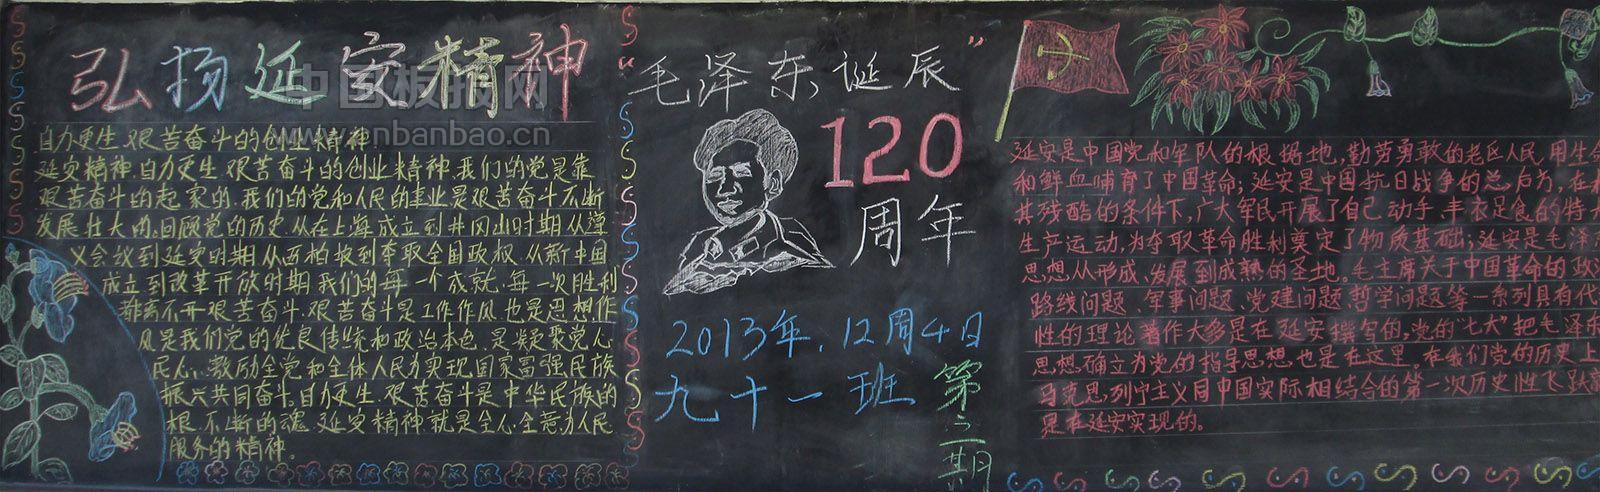 弘扬延安精神
中国板报网
www.cnbanbao.cn
自力更生、艰苦奋斗的创业精神
延安精神,自力更生、艰苦奋斗的创业精神,我们的党是靠
艰苦奋斗的起家的,我们的党和人民的事业是艰苦奋斗不断
发展壮大的。回顾党的历史,从在上海成立到井冈山时期从遵
义会议到延安时期从西柏坡到夺取全国政权,从新中国
成立到改革开放时期,我们的每一个成就,每一次胜利
都离不开艰苦奋斗。艰苦奋斗是工作作风,也是思想作
风是我们党的优良传统和政治本色,是凝聚党心
民心、激励全党和全体人民为实现国家富强民族
振兴共同奋斗。自力更生、艰苦奋斗是中华民族的
根,不断的魂。延安精神就是全心全意为人民
服务的精神。
“毛泽东诞辰”
120
周年
2013年,12周4日
九十一班
第二期
延安是中国党和军队的根据地,勤劳勇敢的老区人民,用生命
和鲜血哺育了中国革命;延安是中国抗日战争的总后方,在
其残酷的条件下,广大军民开展了自己动手,丰衣足食的特
生产运动,为夺取革命胜利奠定了物质基础;延安是毛泽
思想,从形成、发展到成熟的圣地。毛主席关于中国革命的政
路线问题、军事问题、党建问题、哲学问题等一系列具有代
性的理论著作大多是在延安撰写的;党的“七大”把毛泽东
思想确立为党的指导思想,也是在这里。在我们党的历史上
马克思,列宁主义同中国实际相结合的第一次历史性飞跃
是在延安实现的。